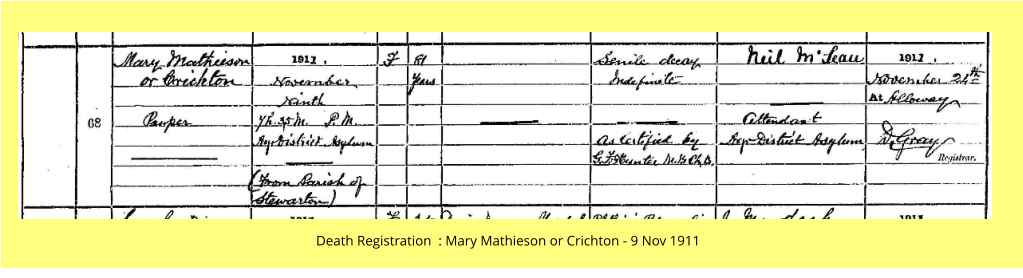 68
Mary Mathieson
or Crichton
Pauper
1911.
November
Ninth
7h. 35 M. P.M.
Ayr District Asylum
(From Parish of
Stewarton)
F
81
Years
Senile decay
Indefinite
As Certified by
G. F. Hunter M.B. Ch.B.
Neil McLean
Attendant
Ayr District Asylum
1911.
November 24th
At Alloway
D. Gray
Registrar.
Death Registration : Mary Mathieson or Crichton - 9 Nov 1911